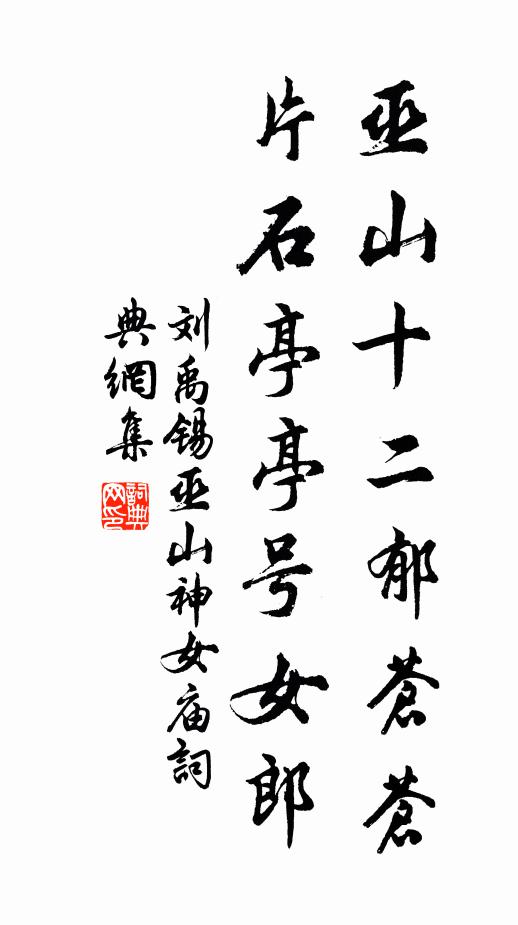 巫山十二郁蒼蒼
片石亭亭号女郎
刘禹锡巫山神女庙詞
典網集
詞典
网印